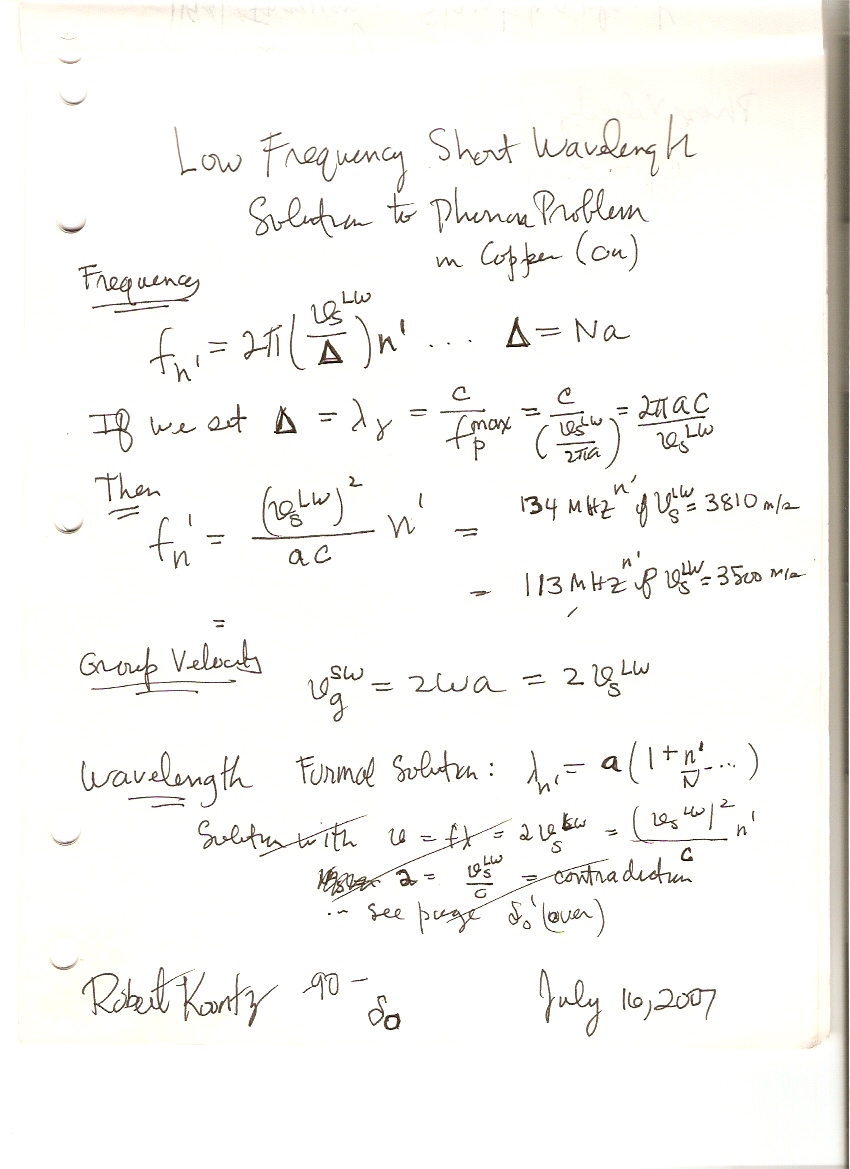 Low Frequency Short Wavelength
Solution to Phonon Problem
in Copper (Cu)
Frequency
fₙ' = 2π(vₛᴸᵂ/Δ)n' ... Δ = Na
If we set Δ = λᵧ = c/fₚᵐᵃˣ = c/(vₛᴸᵂ/2πa) = 2πac/vₛᴸᵂ
Then
fₙ' = (vₛᴸᵂ)²/ac n' = 134 MHz n' if vₛᴸᵂ = 3810 m/s
= 113 MHz n' if vₛᴸᵂ = 3500 m/s
=
Group Velocity v_g^SW = 2ωa = 2vₛᴸᵂ
Wavelength Formal Solution: λₙ' = a(1 + n'/N ...)
Solution with v = fλ = 2vₛᴸᵂ = (vₛᴸᵂ)²/c n'
2 = vₛᴸᵂ/c = contradiction
... see page δ₀' (over)
Robert Koontz -90- July 16, 2007
δ₀